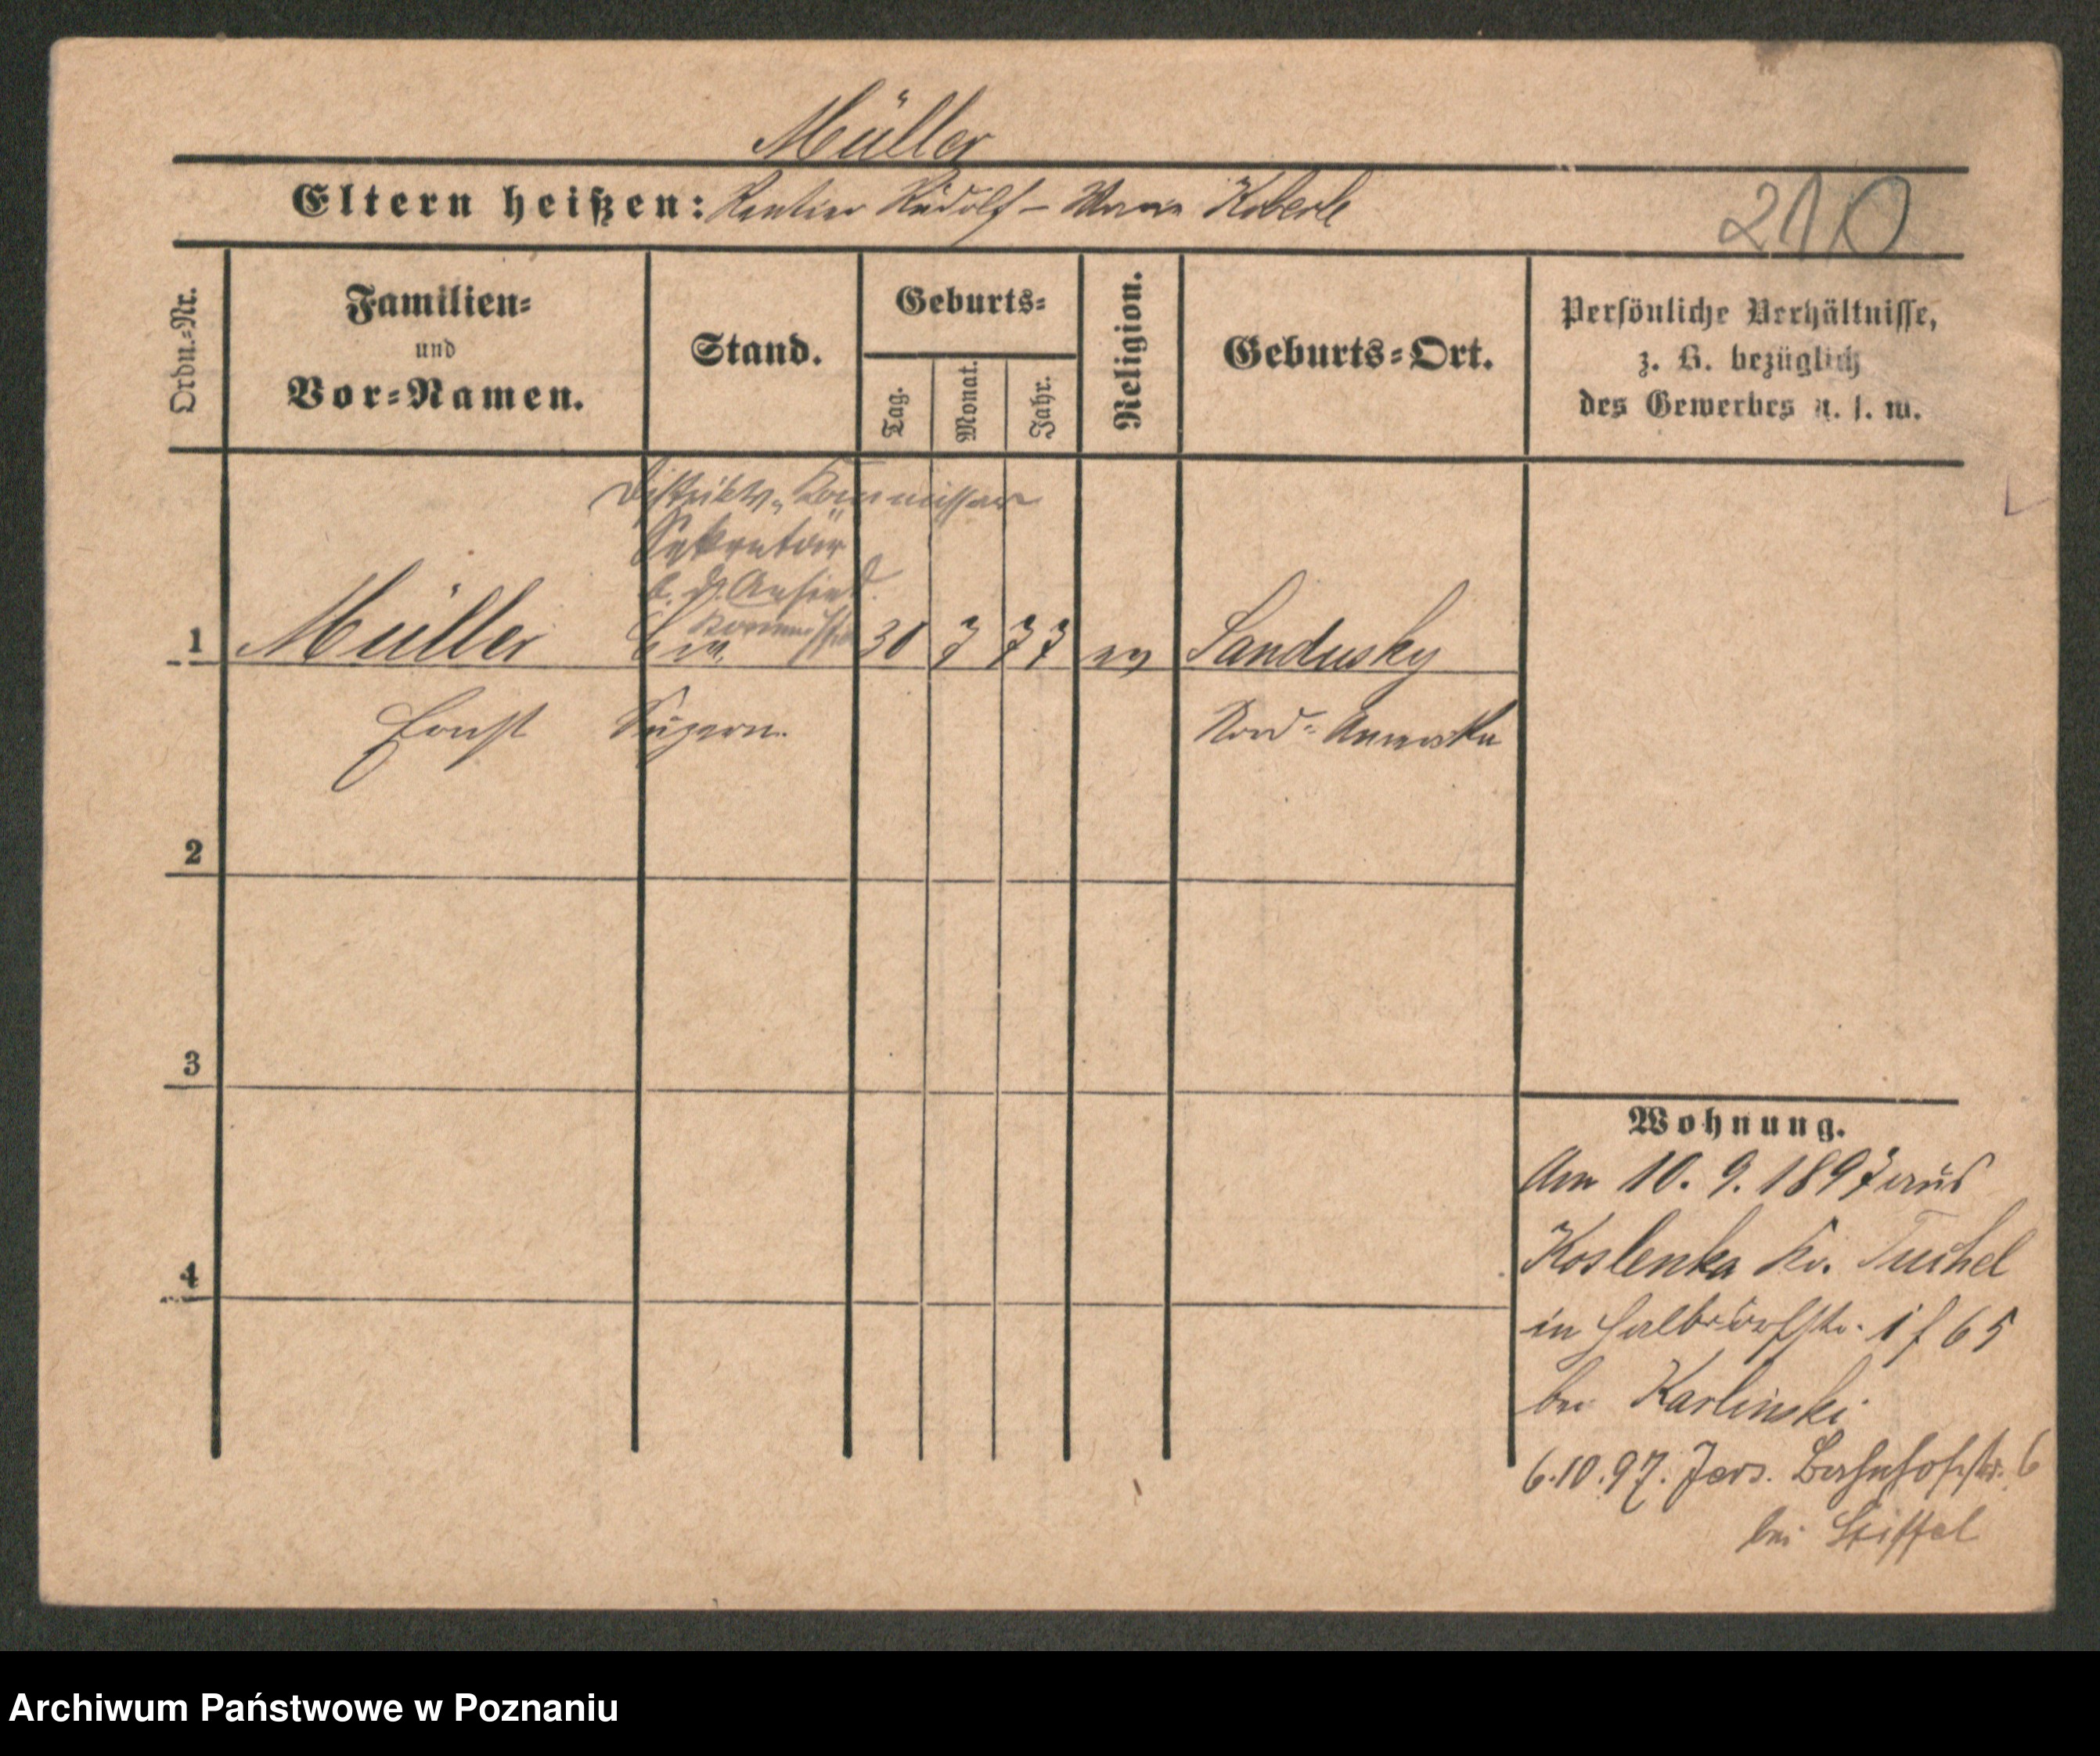 Müller
Eltern heißen: Rentier Rudolf – Maria Koberle
210
Ordn.=Nr.
Familien=
und
Vor=Namen.
Stand.
Geburts=
Tag.
Monat.
Jahr.
Religion.
Geburts=Ort.
Persönliche Verhältnisse,
z. B. bezüglich
des Gewerbes u. s. w.
Distrikts-Kommissar
Sekretär
b. d. Ansied.
Kommission
1 Müller 30 7 77 ev Sandusky
Ernst Supern. Nord-Amerika
2
3
4
Wohnung.
Am 10. 9. 1897 aus
Koslenka Kr. Tuchel
in Halbdorfstr. 65
bei Karlinski
6.10.97. Jers. Bahnhofstr. 6
bei Stiffel
Archiwum Państwowe w Poznaniu